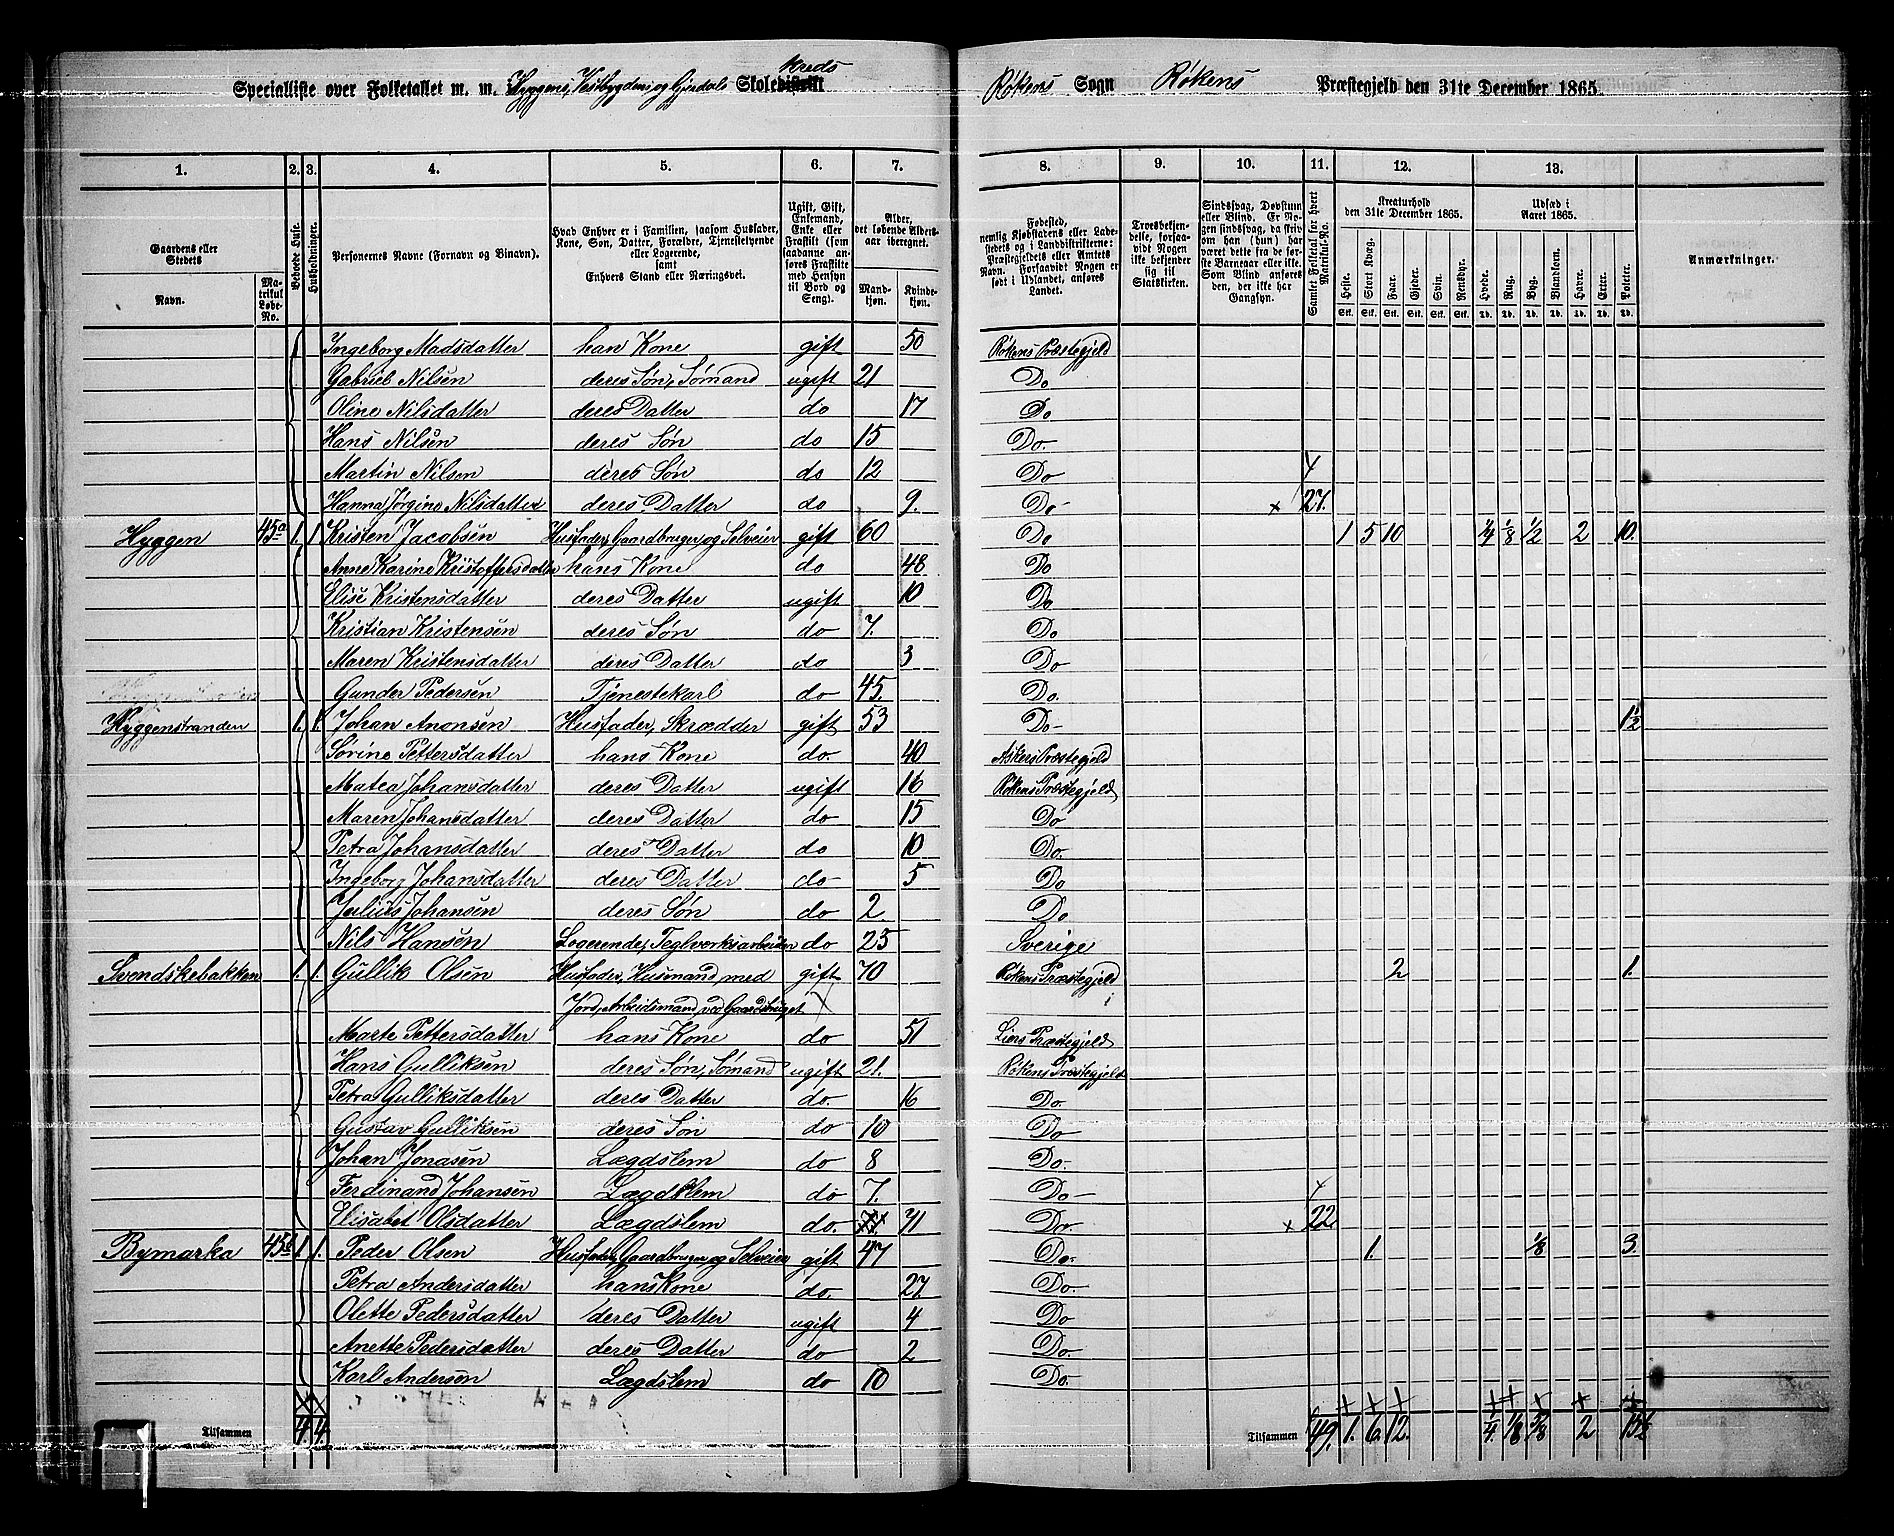 Specialliste over Folketallet m. m. Hyggens, Vestbygdens og Gjerdals Skoledistrikt kreds Røkens Sogn Røkens Præstegjeld den 31te December 1865.
1. 2. 3. 4. 5. 6. 7. 8. 9. 10. 11. 12. 13.
Gaardens eller Stedets Navn. Matrikul Løbe-No. Beboede Huse. Husholdninger. Personernes Navne (Fornavn og Binavn). Hvad Enhver er i Familien, saasom Husfader, Kone, Søn, Datter, Forældre, Tjenestetyende eller Logerende, samt Enhvers Stand eller Næringsvei. Ugift, Gift, Enkemand, Enke eller Fraskilt (som saadanne anføres Fraskilte med Hensyn til Bord og Seng). Alder, det løbende Aldersaar iberegnet. Mandkjøn. Kvindekjøn. Fødested, nemlig Kjøbstadens eller Ladestedets og i Landdistrikterne: Præstegjeldets eller Amtets Navn. Forsaavidt Nogen er født i Udlandet, anføres Landet. Troesbekjendelse, forsaavidt Nogen ikke bekjender sig til Statskirken. Sindssvag, Døvstum eller Blind. Er Nogen sindssvag, da skriv om han (hun) har været dette fra de første Barneaar eller ikke. Som Blind anføres den, der ikke har Gangsyn. Samlet Folketal for hvert Matrikul-No. Kreaturhold den 31te December 1865. Heste. Stort Kvæg. Faar. Gjeder. Svin. Rensdyr. Udsæd i Aaret 1865. Hvede. Rug. Byg. Blandkorn. Havre. Erter. Poteter. Anmærkninger.
Stk. Stk. Stk. Stk. Stk. Stk. Td. Td. Td. Td. Td. Td. Td.
Ingeborg Madsdatter han Kone gift 50 Røkens Præstegjeld
Gabriel Nilsen deres Søn, Sømand ugift 21 Do
Oline Nilsdatter deres Datter do 17 Do
Hans Nilsen deres Søn do 15 Do.
Martin Nilsen deres Søn do 12 Do
Hanna Jørgine Nilsdatter deres Datter do 9. Do- × 27.
Hyggen 45a 1. 1 Kristen Jacobsen Husfader, Gaardbruger og Selveier gift 60 Do 1 5 10 1/4 1/8 1/2 2 10.
Anne Karine Kristoffersdatter hans Kone do 48 Do
Elise Kristensdatter deres Datter ugift 10 Do
Kristian Kristensen deres Søn do 7. Do
Maren Kristensdatter deres Datter do 3 Do
Gunder Pedersen Tjenestekarl do 45. Do.
Hyggenstranden 1. 1. Johan Anonsen Husfader, Skrædder gift 53 Do- 1/2
Sørine Pettersdatter hans Kone do. 40 Askers Præstegjeld
Matea Johansdatter deres Datter ugift 16 Røkens Præstegjeld
Maren Johansdatter deres Datter do 15 Do
Petra Johansdatter deres Datter do 10 Do.
Ingeborg Johansdatter deres Datter do- 5 Do
Julius Johansen deres Søn do 2 Do
Nils Hansen Logerende, Teglverksarbeider do 25 Sverige
Svendskebakken 1. 1. Gullik Olsen Husfader, Husmand med gift 70 Røkens Præstegjeld 2 1.
Jord, Arbeidsmand ved Gaardsbruget
Marte Pettersdatter hans Kone do 51 Liers Præstegjeld
Hans Gulliksen deres Søn, Sømand ugift 21. Røkens Præstegjeld
Petra Gulliksdatter deres Datter do. 16 Do.
Gustav Gulliksen deres Søn do 10 Do
Johan Jonasen Lægdslem do 8 Do.
Ferdinand Johansen Lægdslem do 7. Do-
Elisabet Olsdatter Lægdslem do. 71 Do × 22.
Bymarka 45b 1. 1. Peder Olsen Husfader, Gaardbruger og Selveier gift 47 Do. 1. 1/8 3.
Petra Andersdatter hans Kone do. 27. Do.
Olette Pedersdatter deres Datter ugift 4 Do
Anette Pedersdatter deres Datter do 2 Do.
Karl Anderson Lægdslem do 10 Do.
Tilsammen 4. 4. Tilsammen 49. 1. 6. 12. 1/4. 1/8 5/8 2